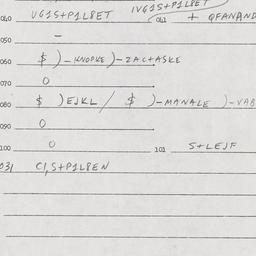 IVG1S+P1L8ET
040 VG1S+P1L8ET 041 + QFANAND
050 -
060 $ )-KNOPKE )-ZACTASKE
070 0
080 $ )EJKL / $ )-MANALE )-VAB
090 0
100 0 101 S+LEJF
031 CI,S+P1L8EN